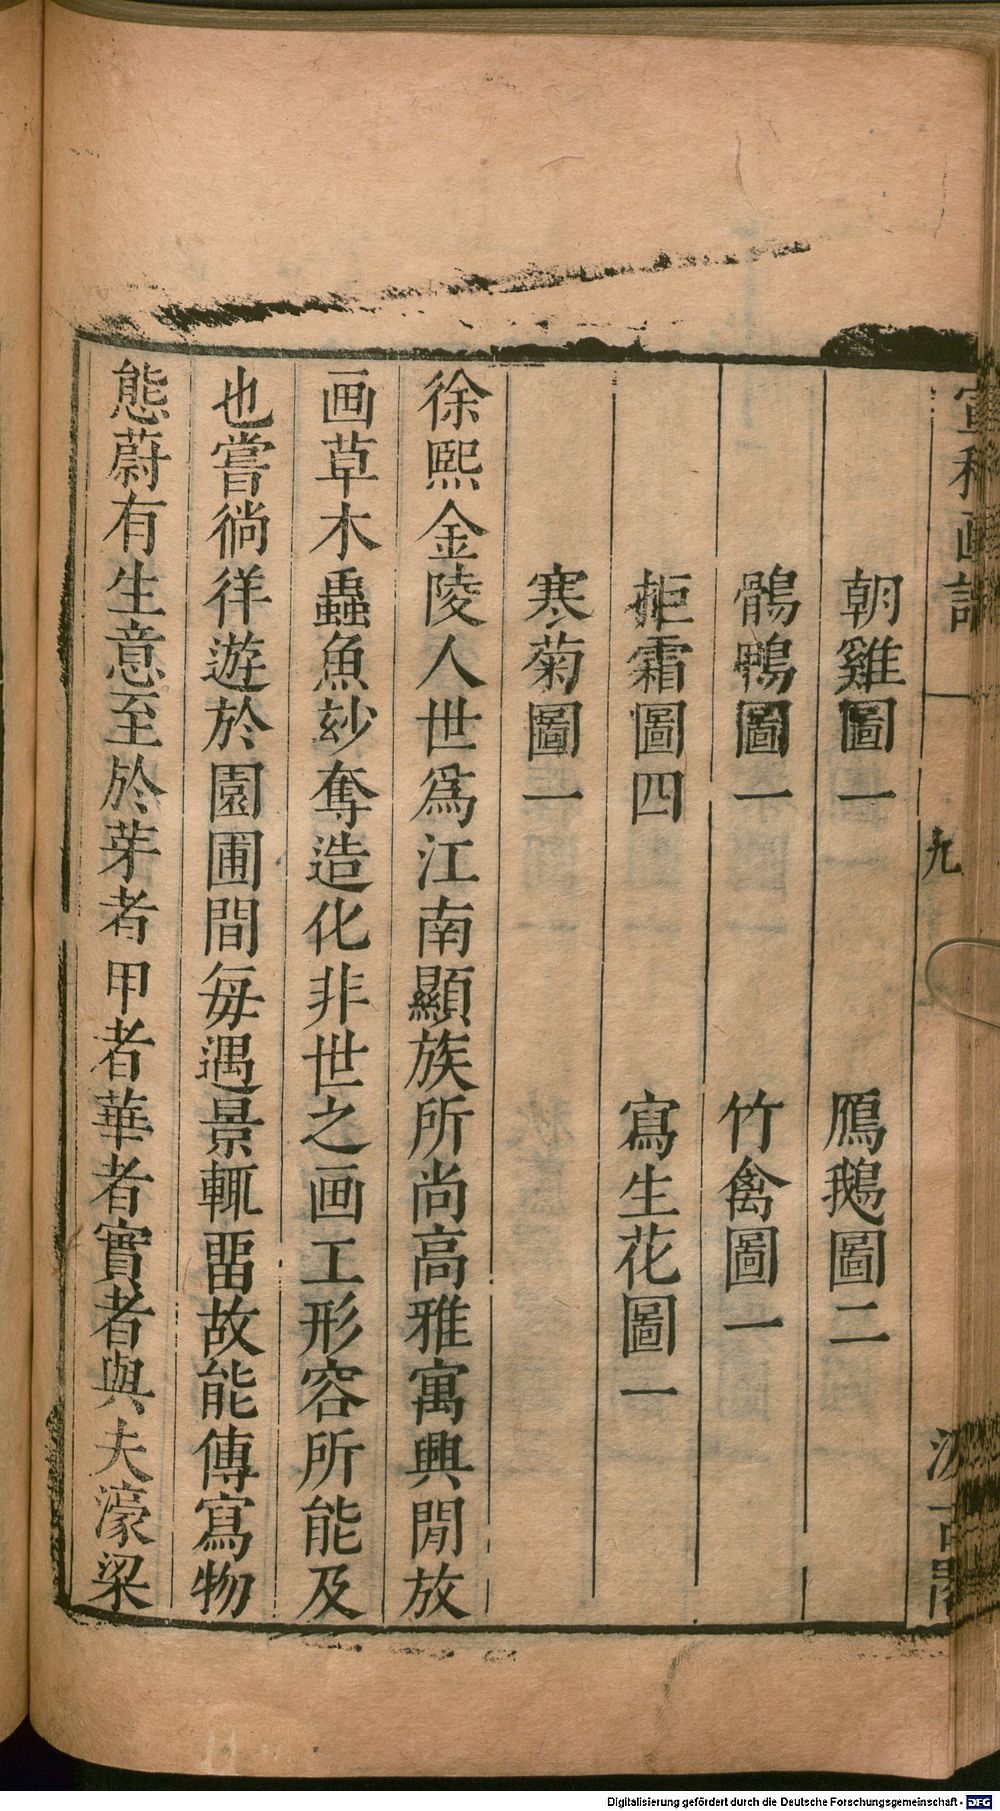 宣和画譜 九 汲古閣
朝雞圖一 鴈鵝圖二
鶻鴨圖一 竹禽圖一
拒霜圖四 寫生花圖一
寒菊圖一
徐熙金陵人世爲江南顯族所尚高雅寓興閒放
画草木蟲魚玅奪造化非世之画工形容所能及
也嘗徜徉遊於園圃間每遇景輒畱故能傳寫物
態蔚有生意至於芽者甲者華者實者與夫濠梁
Digitalisierung gefördert durch die Deutsche Forschungsgemeinschaft - DFG